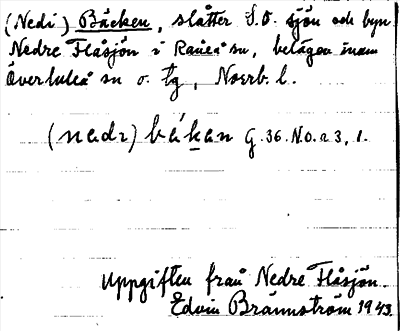 (Nedi) Bäcken, slåtter S.O. sjön och byn
Nedre Flåsjön i Råneå sn, belägen inom
Överluleå sn o. tg, Norrb. l.
(nedr) bäkan G. 36. N.O. a 3, 1.
Uppgiften från Nedre Flåsjön.
Edvin Brännström 1943.